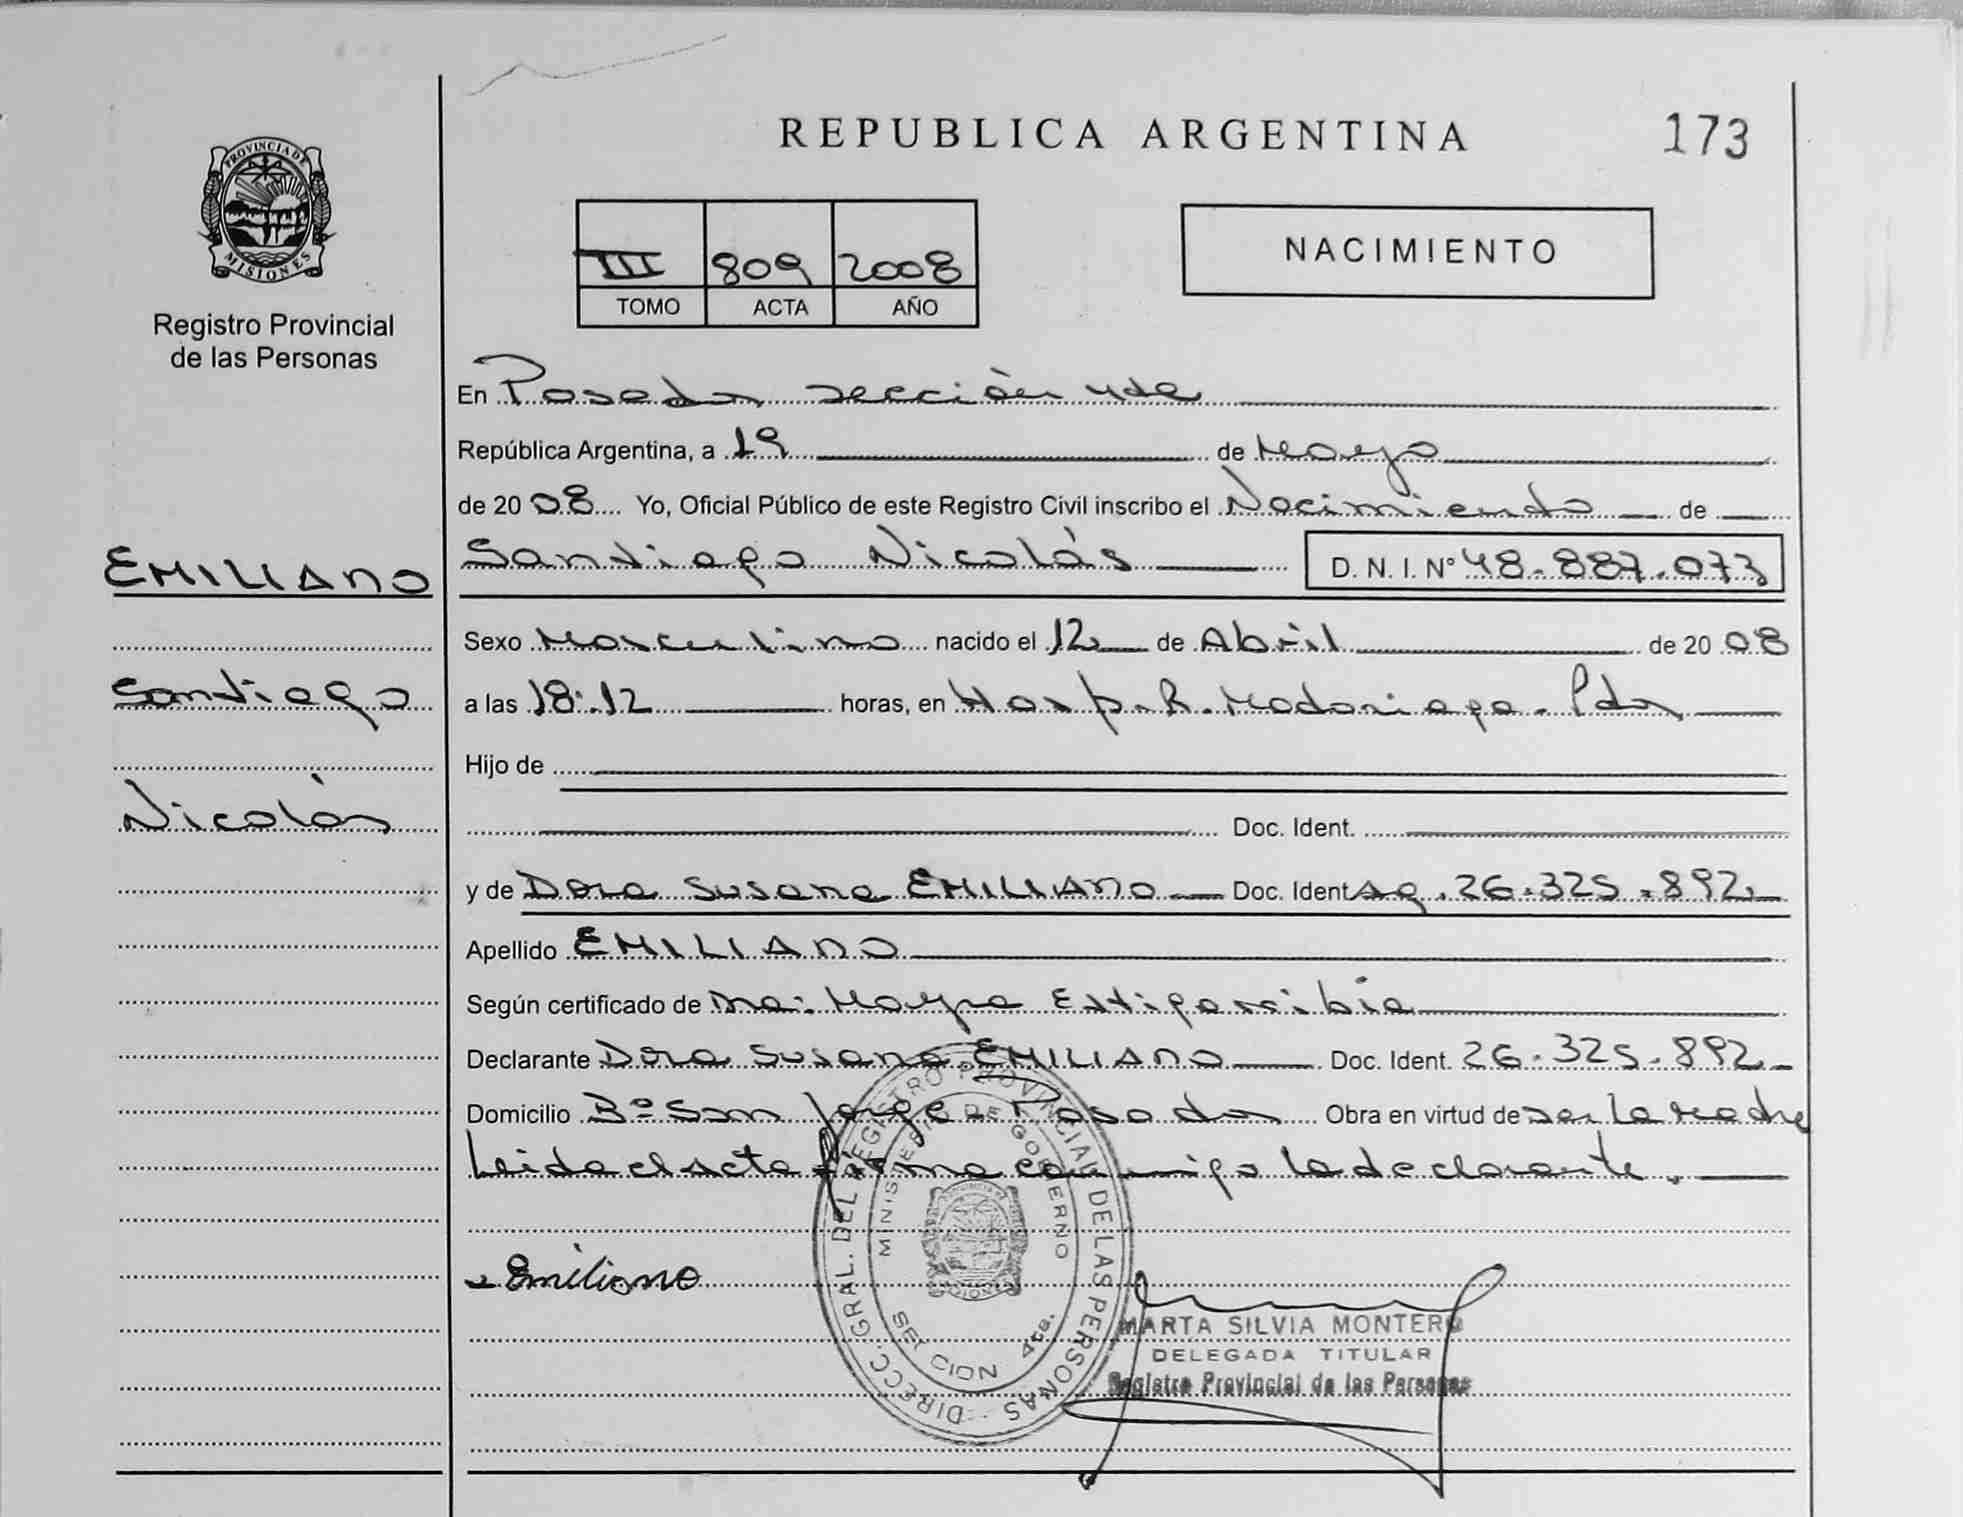 REPUBLICA ARGENTINA
173
PROVINCIA DE
MISIONES
Registro Provincial
de las Personas
III 809 2008
TOMO ACTA AÑO
NACIMIENTO
En Posadas sección 4ta
República Argentina, a 19 de Mayo
de 20 08 Yo, Oficial Público de este Registro Civil inscribo el Nacimiento de
EMILIANO
Santiago Nicolás D. N. I. N° 48.887.073
Sexo Masculino nacido el 12 de Abril de 20 08
Santiago
a las 18:12 horas, en Hosp. R. Madariaga. Pdas
Hijo de
Nicolás
Doc. Ident.
y de Dora Susana EMILIANO Doc. Ident Ag. 26.325.892
Apellido EMILIANO
Según certificado de Dra: Mayra Estigarribia
Declarante Dora Susana EMILIANO Doc. Ident. 26.325.892
Domicilio Bº San Jorge - Posadas Obra en virtud de ser la madre
Leida el acta firma conmigo la declarante.
Emiliano
DIRECC. GRAL. DEL REGISTRO PROVINCIAL DE LAS PERSONAS
MINISTERIO DE GOBIERNO
SECCION 4ta.
MARTA SILVIA MONTERO
DELEGADA TITULAR
Registro Provincial de las Personas